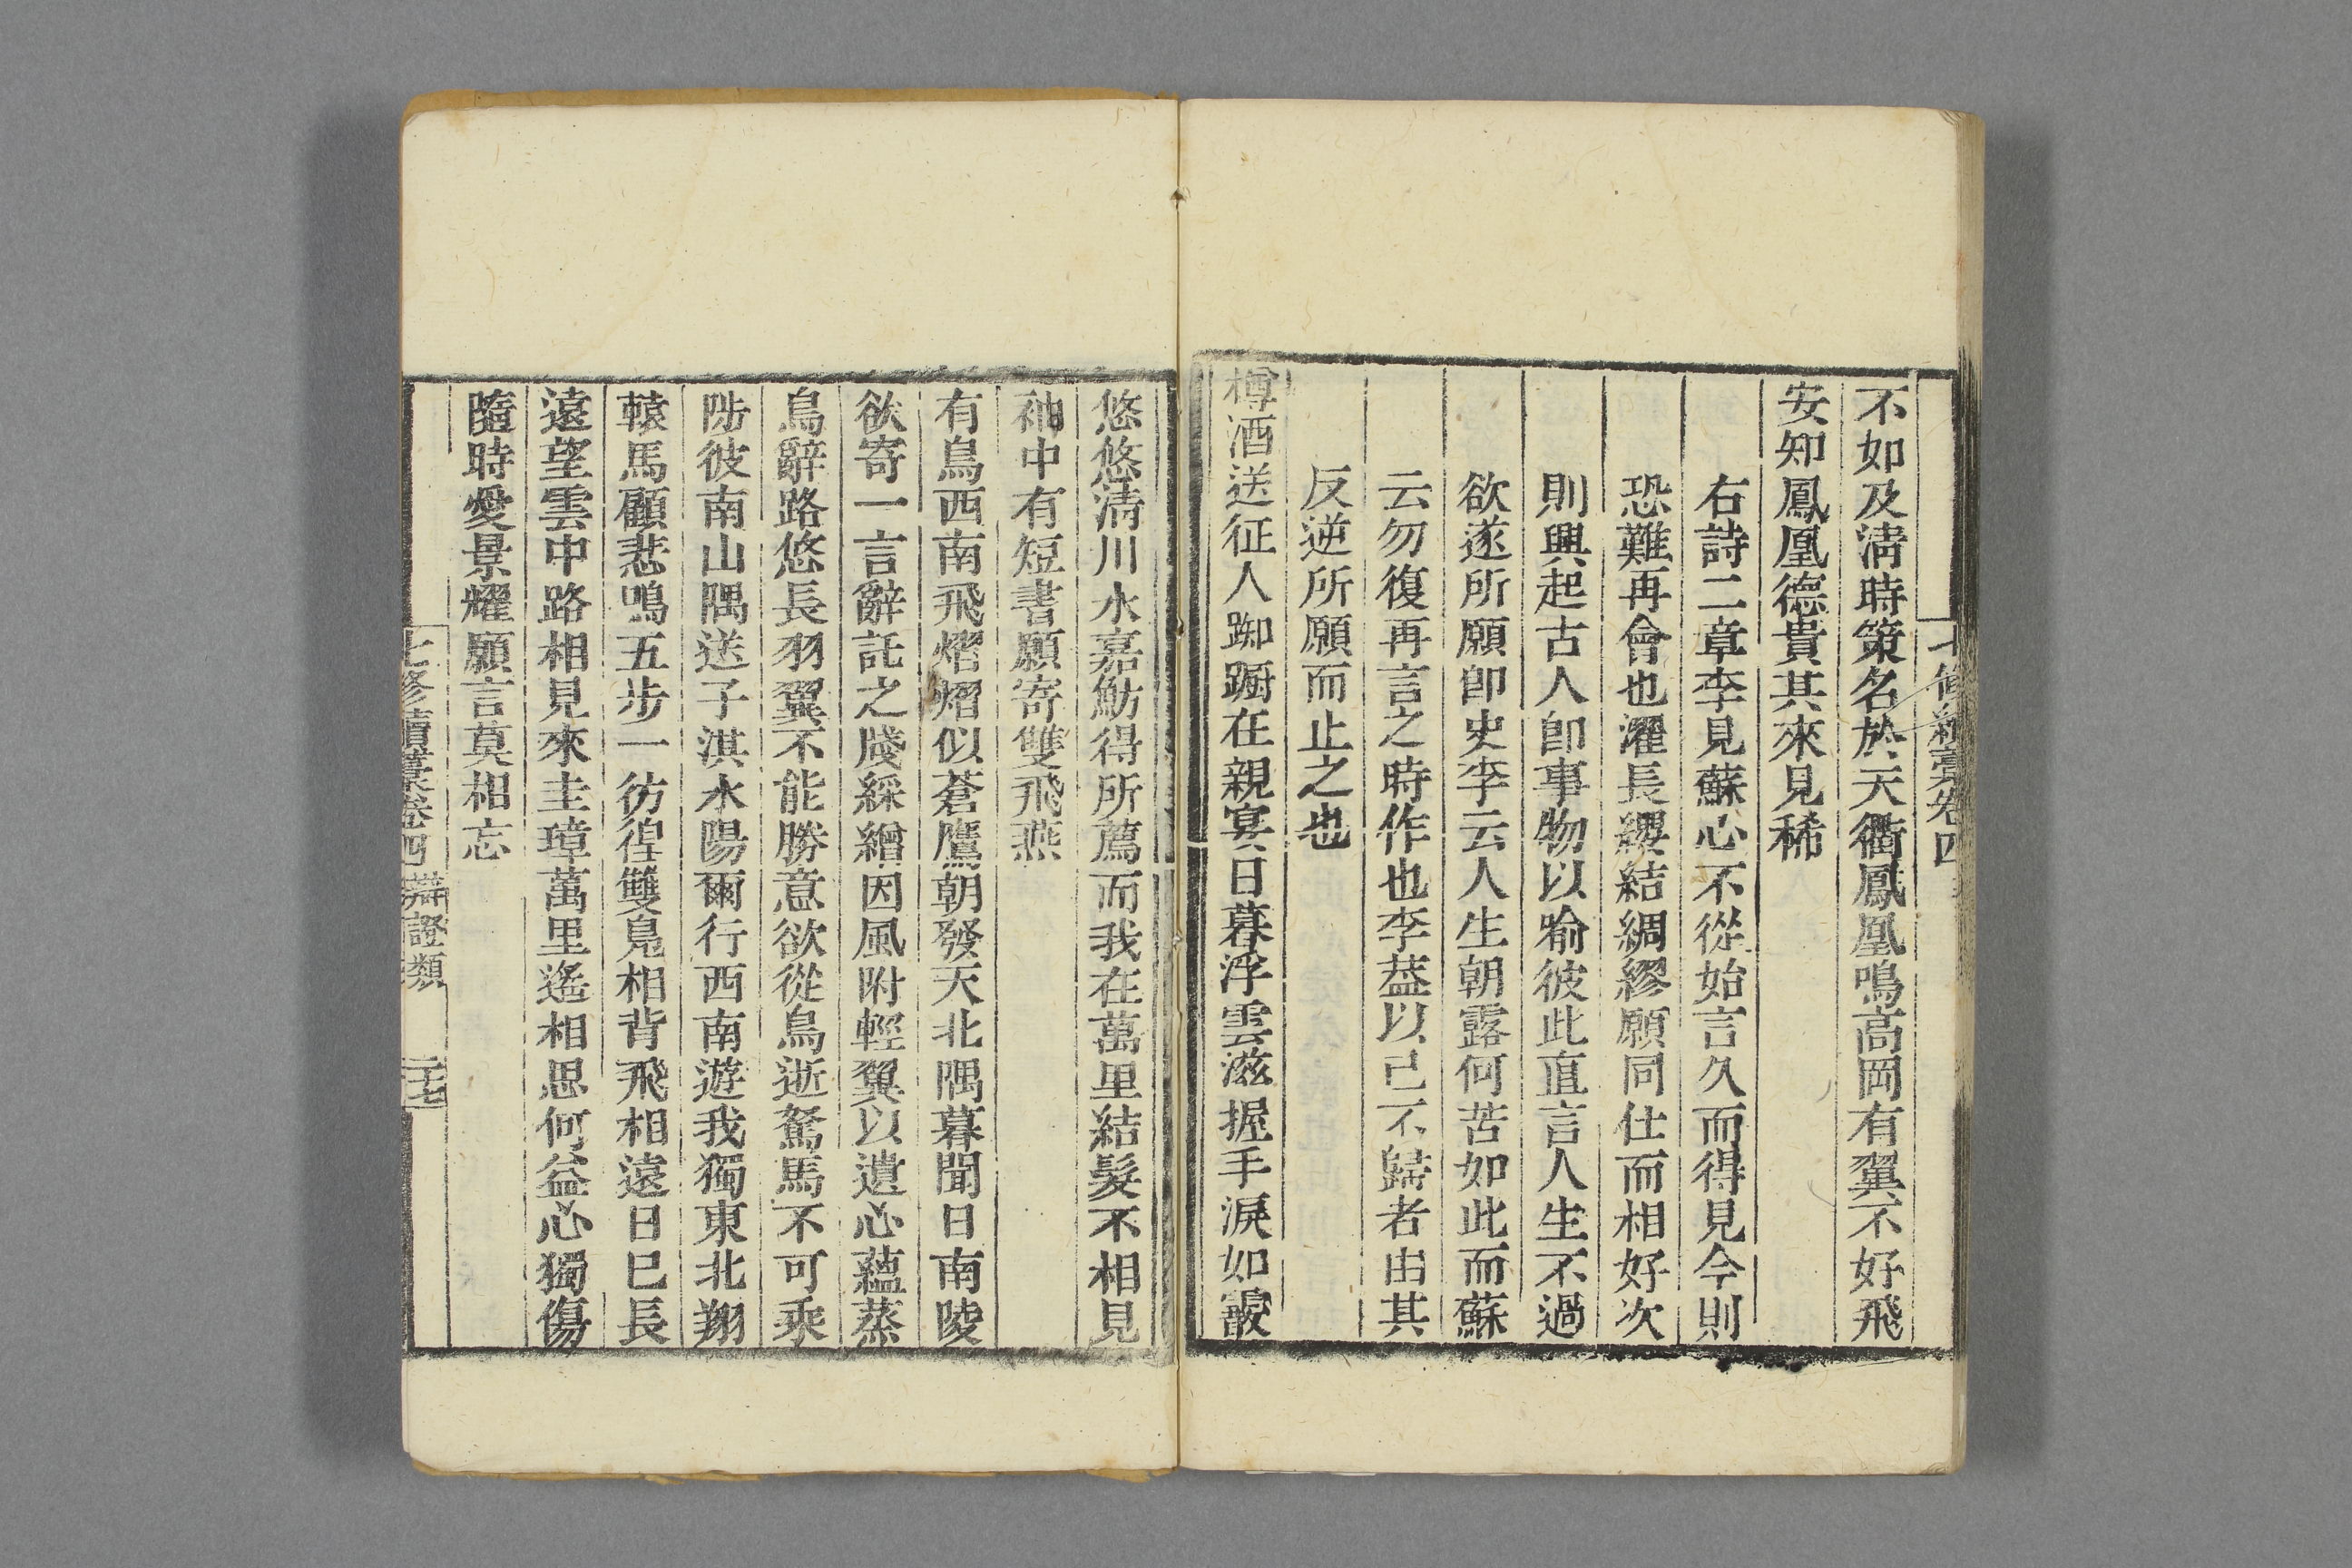 七修續稾卷四
不如及淸時策名於天衢鳳凰鳴高岡有翼不好飛
安知鳳凰德貴其來見稀
右詩二章李見蘇心不從始言久而得見今則
恐難再會也濯長纓結綢繆願同仕而相好次
則興起古人卽事物以喻彼此直言人生不過
欲遂所願卽史李云人生朝露何苦如此而蘇
云勿復再言之時作也李葢以己不歸者由其
反逆所願而止之也
樽酒送征人踟蹰在親宴日暮浮雲滋握手淚如霰
悠悠淸川水嘉魴得所薦而我在萬里結髮不相見
袖中有短書願寄雙飛燕
有鳥西南飛熠熠似蒼鷹朝發天北隅暮聞日南陵
欲寄一言辭託之牋綵繒因風附輕翼以遺心蘊蒸
鳥辭路悠長羽翼不能勝意欲從鳥逝駑馬不可乘
陟彼南山隅送子淇水陽爾行西南遊我獨東北翔
轅馬顧悲鳴五步一彷徨雙鳧相背飛相遠日已長
遠望雲中路相見來圭璋萬里遙相思何益心獨傷
隨時愛景耀願言莫相忘
七修續稾卷四 辯證類 二十七